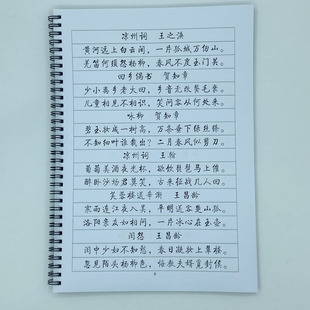 凉州词 王之涣
黄河远上白云间，一片孤城万仞山。
羌笛何须怨杨柳，春风不度玉门关。
回乡偶书 贺知章
少小离乡老大回，乡音无改鬓毛衰。
儿童相见不相识，笑问客从何处来。
咏柳 贺知章
碧玉妆成一树高，万条垂下绿丝绦。
不知细叶谁裁出？二月春风似剪刀。
凉州词 王翰
葡萄美酒夜光杯，欲饮琵琶马上催。
醉卧沙场君莫笑，古来征战几人回。
芙蓉楼送辛渐 王昌龄
寒雨连江夜入吴，平明送客楚山孤。
洛阳亲友如相问，一片冰心在玉壶。
闺怨 王昌龄
闺中少妇不知愁，春日凝妆上翠楼。
忽见陌头杨柳色，悔教夫婿觅封侯。